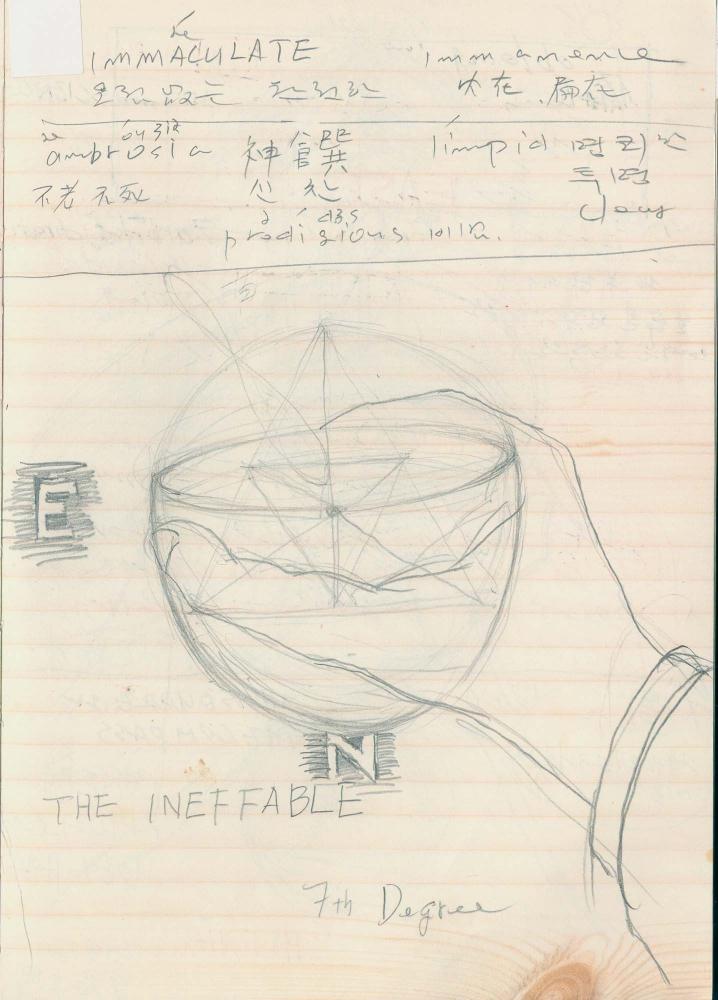 IMMACULATE immanence
오점 없는 완전한 内在, 扁在
ambrosia 神饌 limpid 명쾌한
투명
不老不死 신찬
clear
prodigious
E
N
THE INEFFABLE
7th Degree